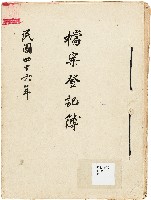 檔案登記簿
民國四十六年